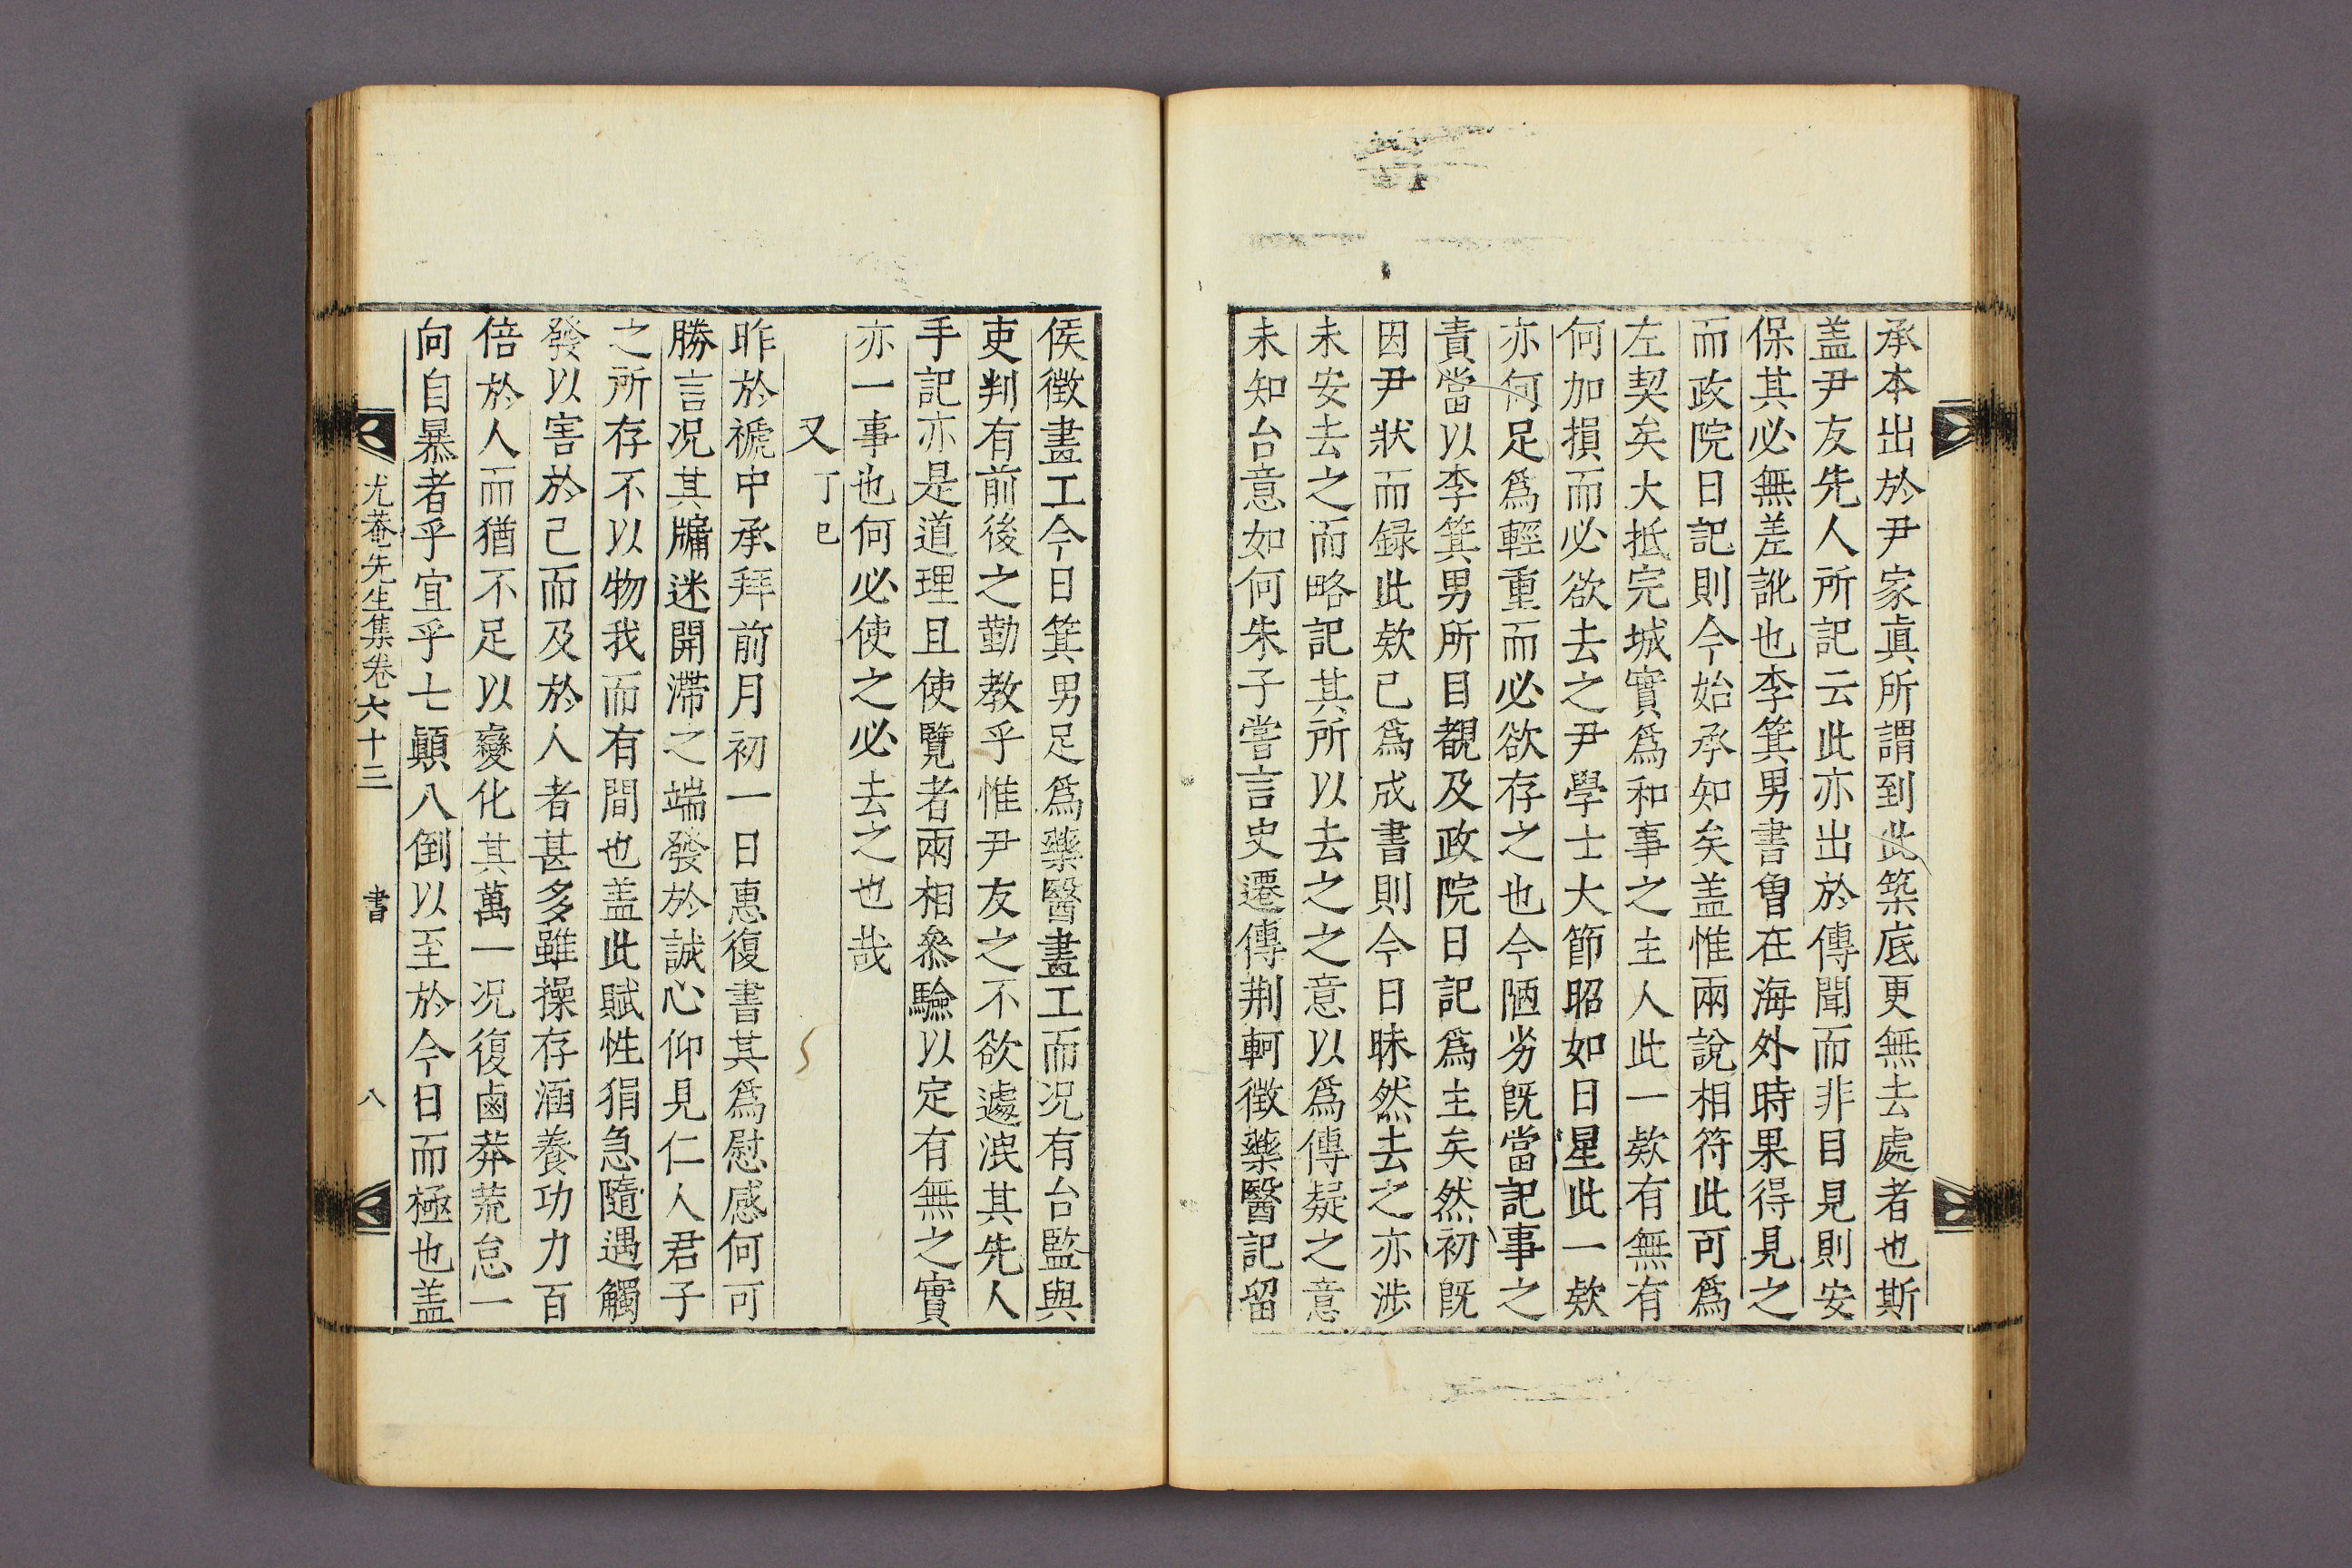 承本出於尹家眞所謂到此築底更無去處者也斯
盖尹友先人所記云此亦出於傳聞而非目見則安
保其必無差訛也李箕男書曾在海外時果得見之
而政院日記則今始承知矣盖惟兩說相符此可爲
左契矣大抵完城實爲和事之主人此一欵有無有
何加損而必欲去之尹學士大節昭如日星此一欵
亦何足爲輕重而必欲存之也今陋劣旣當記事之
責當以李箕男所目覩及政院日記爲主矣然初旣
因尹狀而録此欵已爲成書則今日昧然去之亦涉
未安去之而略記其所以去之之意以爲傳疑之意
未知台意如何朱子嘗言史遷傳荆軻徵藥醫記留
侯徵畫工今日箕男足爲藥醫畫工而况有台監與
吏判有前後之勤敎乎惟尹友之不欲遽泯其先人
手記亦是道理且使覽者兩相叅驗以定有無之實
亦一事也何必使之必去之也哉
又丁巳
昨於褫中承拜前月初一日惠復書其爲慰感何可
勝言况其牖迷開滯之端發於誠心仰見仁人君子
之所存不以物我而有間也盖此賦性狷急隨遇觸
發以害於己而及於人者甚多雖操存涵養功力百
倍於人而猶不足以變化其萬一况復鹵莽荒怠一
向自暴者乎宜乎七顚八倒以至於今日而極也盖
尤菴先生集卷六十三
書
八